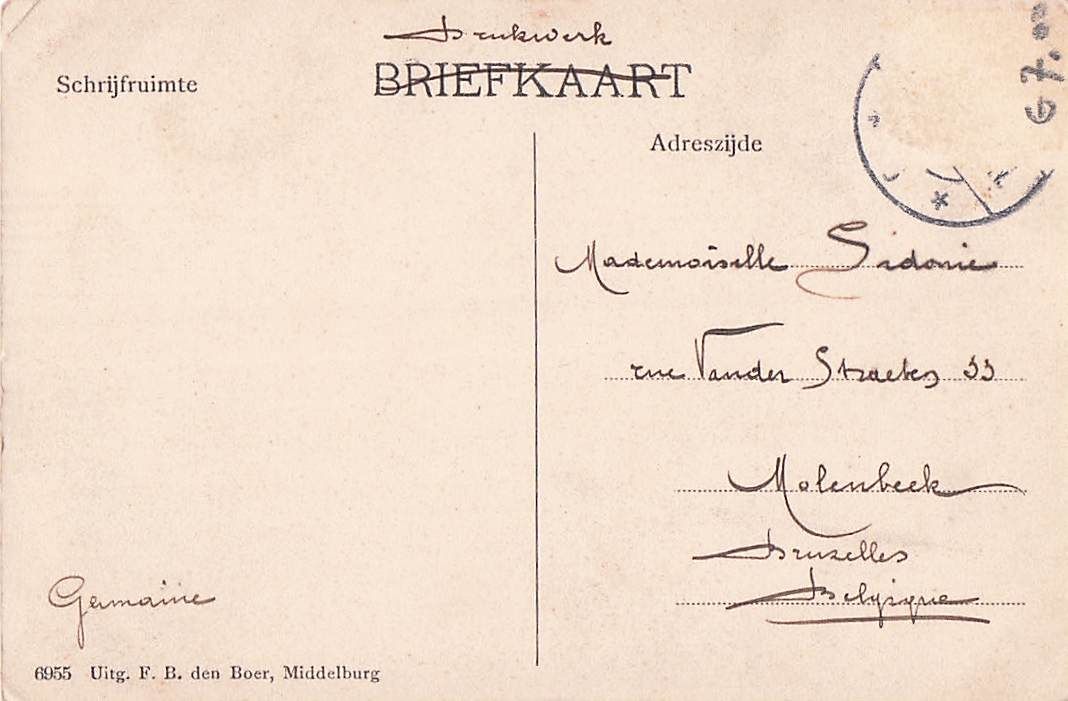 Drukwerk
BRIEFKAART
Schrijfruimte
Adreszijde
67.
Mademoiselle Sidonie
rue Vander Straeten 33
Molenbeek
Bruxelles
Belgique
Germaine
6955 Uitg. F. B. den Boer, Middelburg